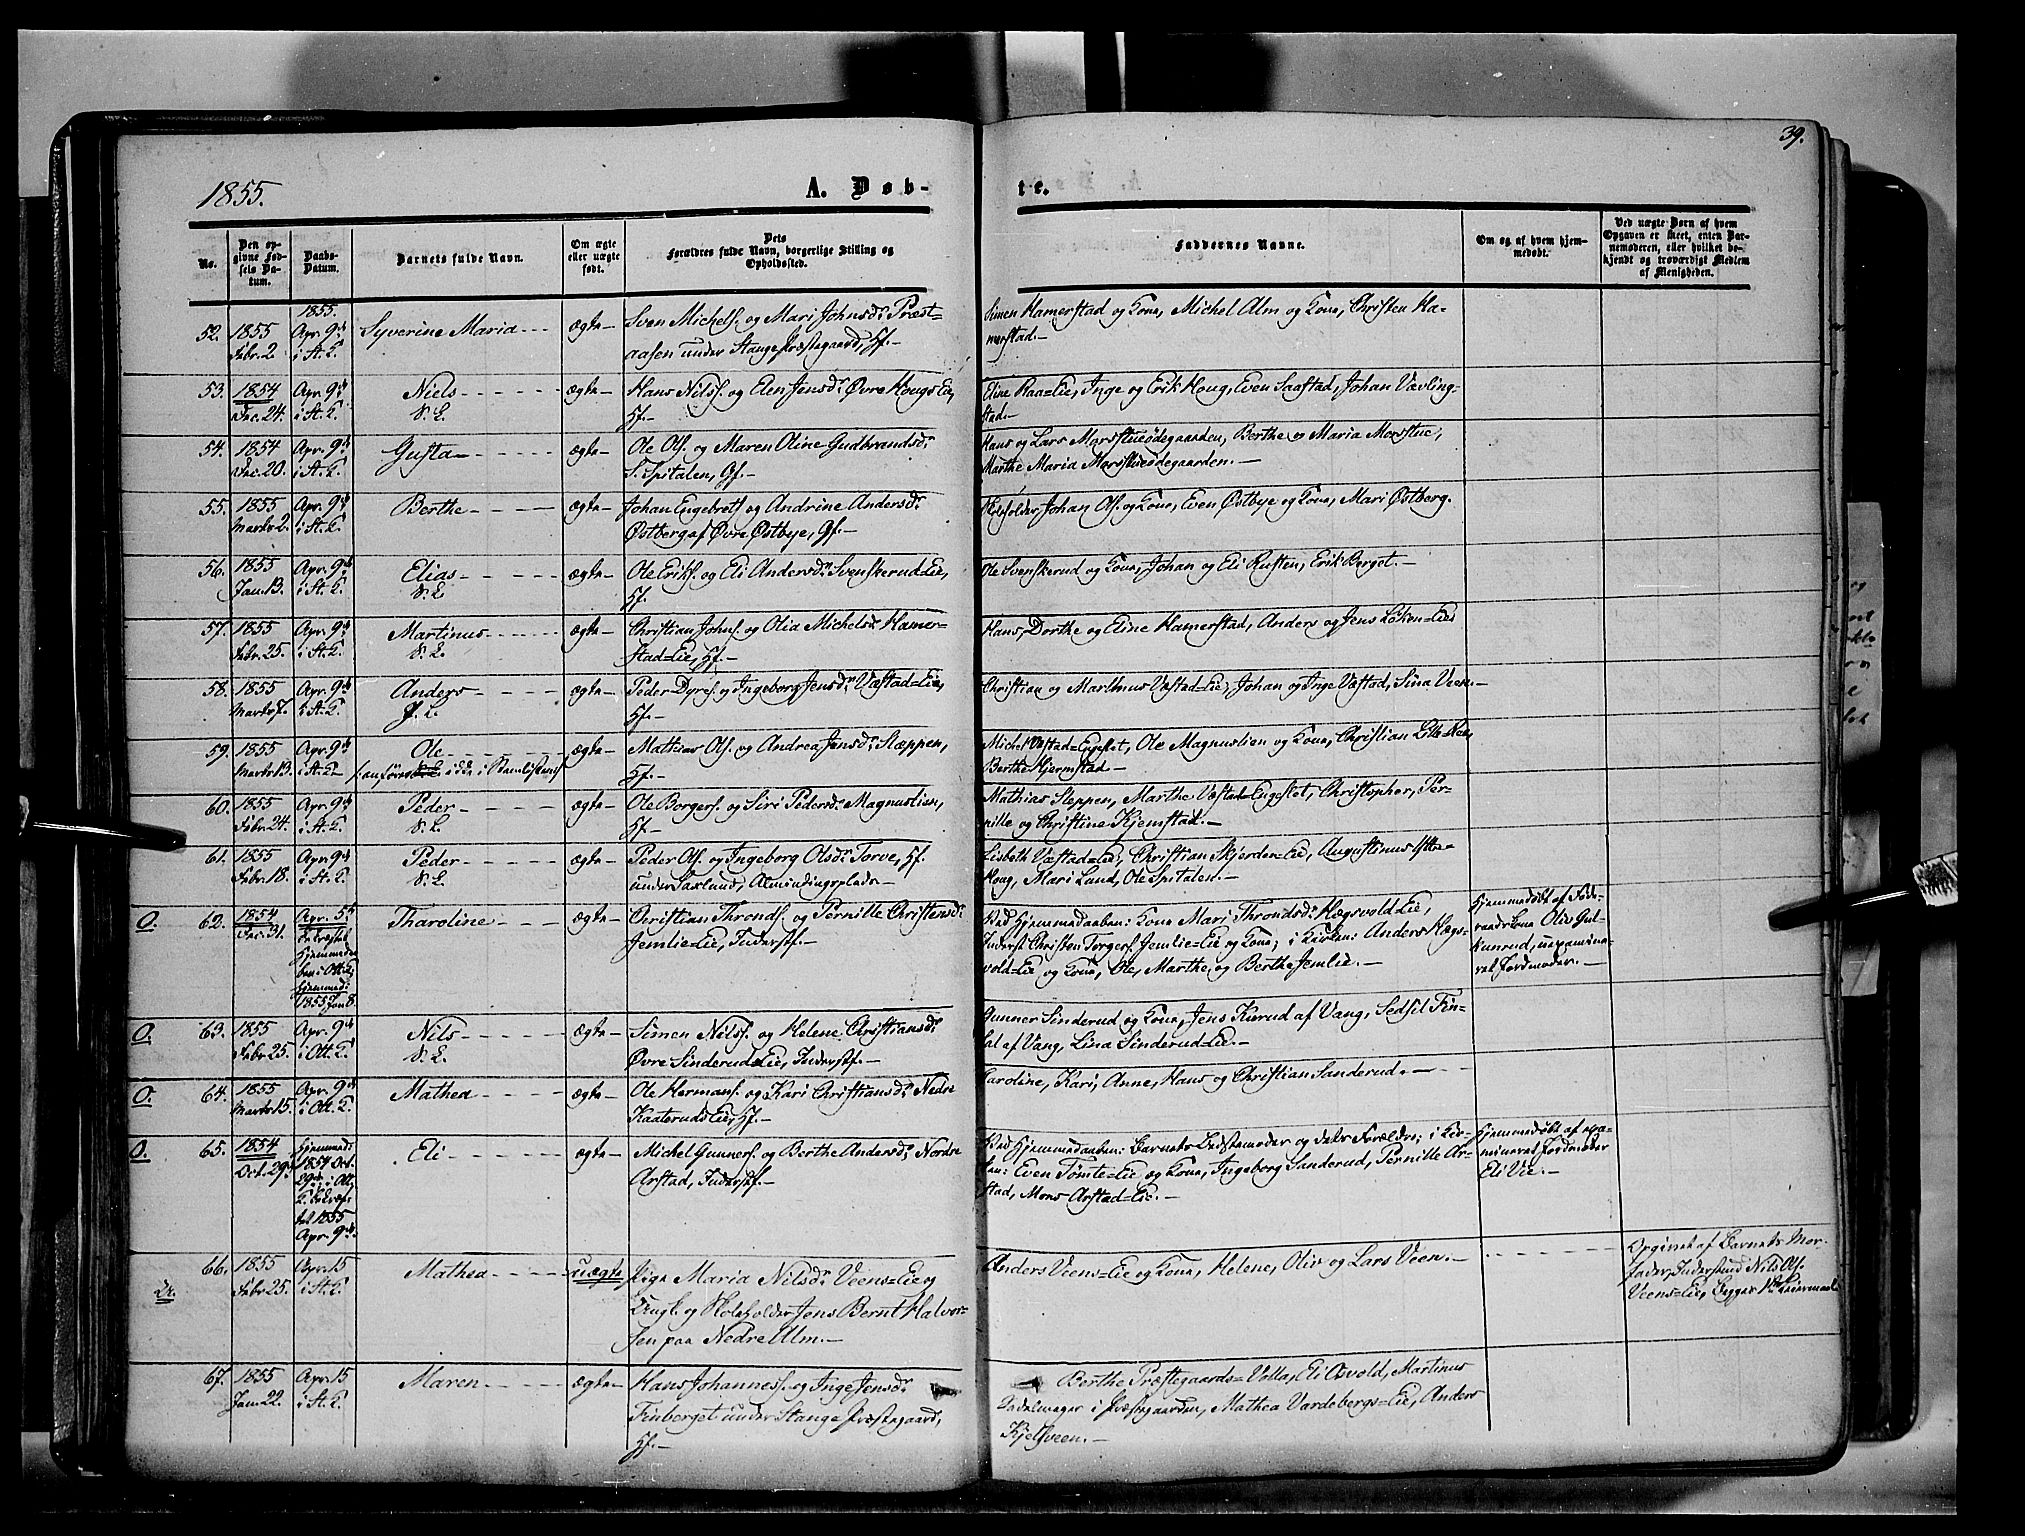 39.
1855.
A. Døb-
te.
No.
Den op-
givne Fød-
sels Da-
tum.
Daabs-
Datum.
Barnets fulde Navn.
Om ægte
eller uægte
født.
Dets
Forældres fulde Navn, borgerlige Stilling og
Opholdssted.
Faddernes Navne.
Om og af hvem hjem-
medøbt.
Ved uægte Børn af hvem
Opgaven er skeet, enten Bar-
nemoderen, eller hvilket be-
kjendt og troværdigt Medlem
af Menigheden.
1855.
52. 1855 Apr. 9de Syverine Maria ægte Sven Michels. og Mari Johnsdr. Præst=
Febr. 2 i St. K. aasen under Stange Præstegaard, Hf.
Simen Hamerstad og Kone, Michel Alm og Kone, Christen Ha-
merstad.
53. 1854 Apr. 9de Niels ægte Hans Nils. og Elen Jensdr. Øvre Hougs Eie,
Dec. 24. i St. K. Hf.
Eline Raa=Eie, Inge og Erik Houg, Even Saastad, Johan Vævling-
stad.
54. 1854 Apr. 9de Gusta ægte Ole Ols. og Maren Oline Gudbrandsdr.
Dec. 20. i St. K. Spitalen, Gf.
Hans og Lars Morstueødegaarden, Berthe og Maria Morstue,
Marthe Maria Morstueødegaarden.
55. 1855 Apr. 9de Berthe ægte Johan Engebrets. og Andrine Andersdr.
Marts 2. i St. K. Østberg af Øvre Østbye, Gf.
Johan Ols. og Kone, Even Østbye og Kone, Mari Østberg.
56. 1855 Apr. 9de Elias ægte Ole Eriks. og Eli Andersdr. Svenskerud=Eie,
Jan. 13. i St. K. Hf.
Ole Svenskerud og Kone, Johan og Eli Rusten, Erik Berget.
57. 1855 Apr. 9de Martinus ægte Christian Johns. og Olia Michelsdr. Hamer-
Febr. 25. i St. K. stad=Eie, Hf.
Hans, Dorthe og Eline Hamerstad, Anders og Jens Løken=Eie
58. 1855 Apr. 9de Anders ægte Peder Dyres. og Ingeborg Jensdr. Væstad=Eie,
Marts 7. i St. K. Hf.
Christian og Marthnus Væstad=Eie, Johan og Inge Væstad, Sina Veen.
59. 1855 Apr. 9de Ole ægte Mathias Ols. og Andrea Jensdr. Steppen,
Marts 13. i St. K. Hf.
Michel Væstad=Engeslet, Ole Magnuslien og Kone, Christian
Berthe Kjemstad
60. 1855 Apr. 9de Peder ægte Ole Borgers. og Siri Pedersdr. Magnuslien,
Febr. 24. i St. K. Hf.
Mathias Steppen, Marthe Væstad=Engeslet, Christopher, Per-
nille og Christine Kjemstad.
61. 1855 Apr. 9de Peder ægte Peder Ols. og Ingeborg Olsdr. Torve, Hf.
Febr. 18. i St. K. under Saxlund, Almindingsplads
Lisbeth Væstad=Eie, Christian Skjerden=Eie, Augustinus
Houg, Mari Lund, Ole Spitalen.
O. 62. 1854 Apr. 5te Tharoline ægte Christian Thronds. og Pernille Christensdr.
Dec. 31. Jemlie=Eie, Inderst.
Hjemmedaaben: Kone Mari Throndsdr. Hægsvold=Eie,
Inderst Christen Torgers. Jemlie=Eie og Kone; i Kirken: Anders Hægs-
vold=Eie og Kone, Ole, Marthe og Berthe Jemlie.
Hjemmedøbt af
Kone Oliv Gul-
kunrud, uexamine-
ret Jordmoder.
1855 Jan. 8.
O. 63. 1855 Apr. 9de Nils ægte Simen Nils. og Helene Christiansdr.
Febr. 25. i Ott. K. Øvre Sinderud=Eie, Inderst.
Gunner Sinderud og Kone, Jens Kurud af Vang, Sedsil Fin-
sal af Vang, Lina Sinderud=Eie.
O. 64. 1855 Apr. 9de Mathea ægte Ole Hermans. og Kari Christiansdr. Nedre
Marts 15. i Ott. K. Kaaterud=Eie, Hf.
Caroline, Kari, Anne, Hans og Christian Sanderud.
O. 65. 1854 Hjemmed. Eli ægte Michel Gunners. og Berthe Andersdr. Nordre
Oct. 29. 1854 Oct. Arstad, Inderst.
1855
Apr. 9de.
Ved Hjemmedaaben: Barnets Bedstemoder og dets Forældre; i Kir-
ken: Even Tømte=Eie og Kone, Ingeborg Sanderud, Pernille Ar-
stad, Mons Arstad=Eie.
Hjemmedøbt af exa-
mineret Jordmoder
Eli Vie.
66. 1855 Apr. 15 Mathea uægte Pige Maria Nilsdr. Veens=Eie og
Febr. 25. i St. K. Ungk. og Skoleholder Jens Bernt Halvor-
sen paa Nedre Alm.
Anders Veens=Eie og Kone, Helene, Oliv og Lars Veen.
Opgivet af Barnets Mor-
fader, Inderst Nils Ols.
Veens=Eie,
67. 1855 Apr. 15 Maren ægte Hans Johannes. og Inge Jensdr.
Jan. 22. i St. K. Finberget under Stange Præstegaard,
Hf.
Berthe Præstegaards=Volla, Eli Osvold, Martinus
Sadelmager i Præstegaarden, Mathea Vardebergs=Eie, Anders
Kjelsveen.